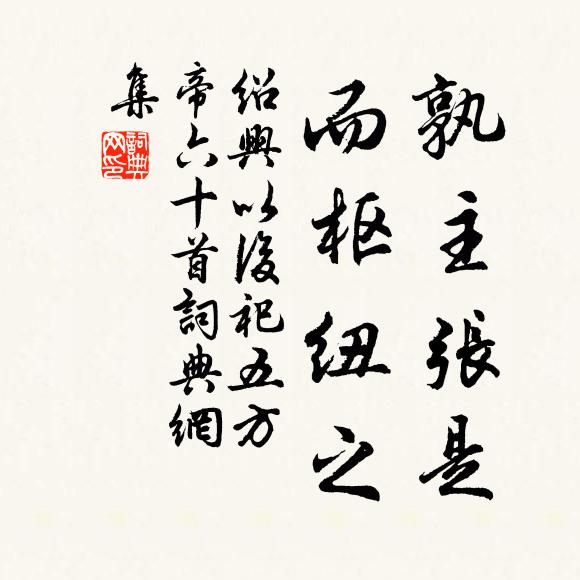 孰主張是
而枢纽之
紹興以後祀五方
帝六十首詞典網
集
詞典网印